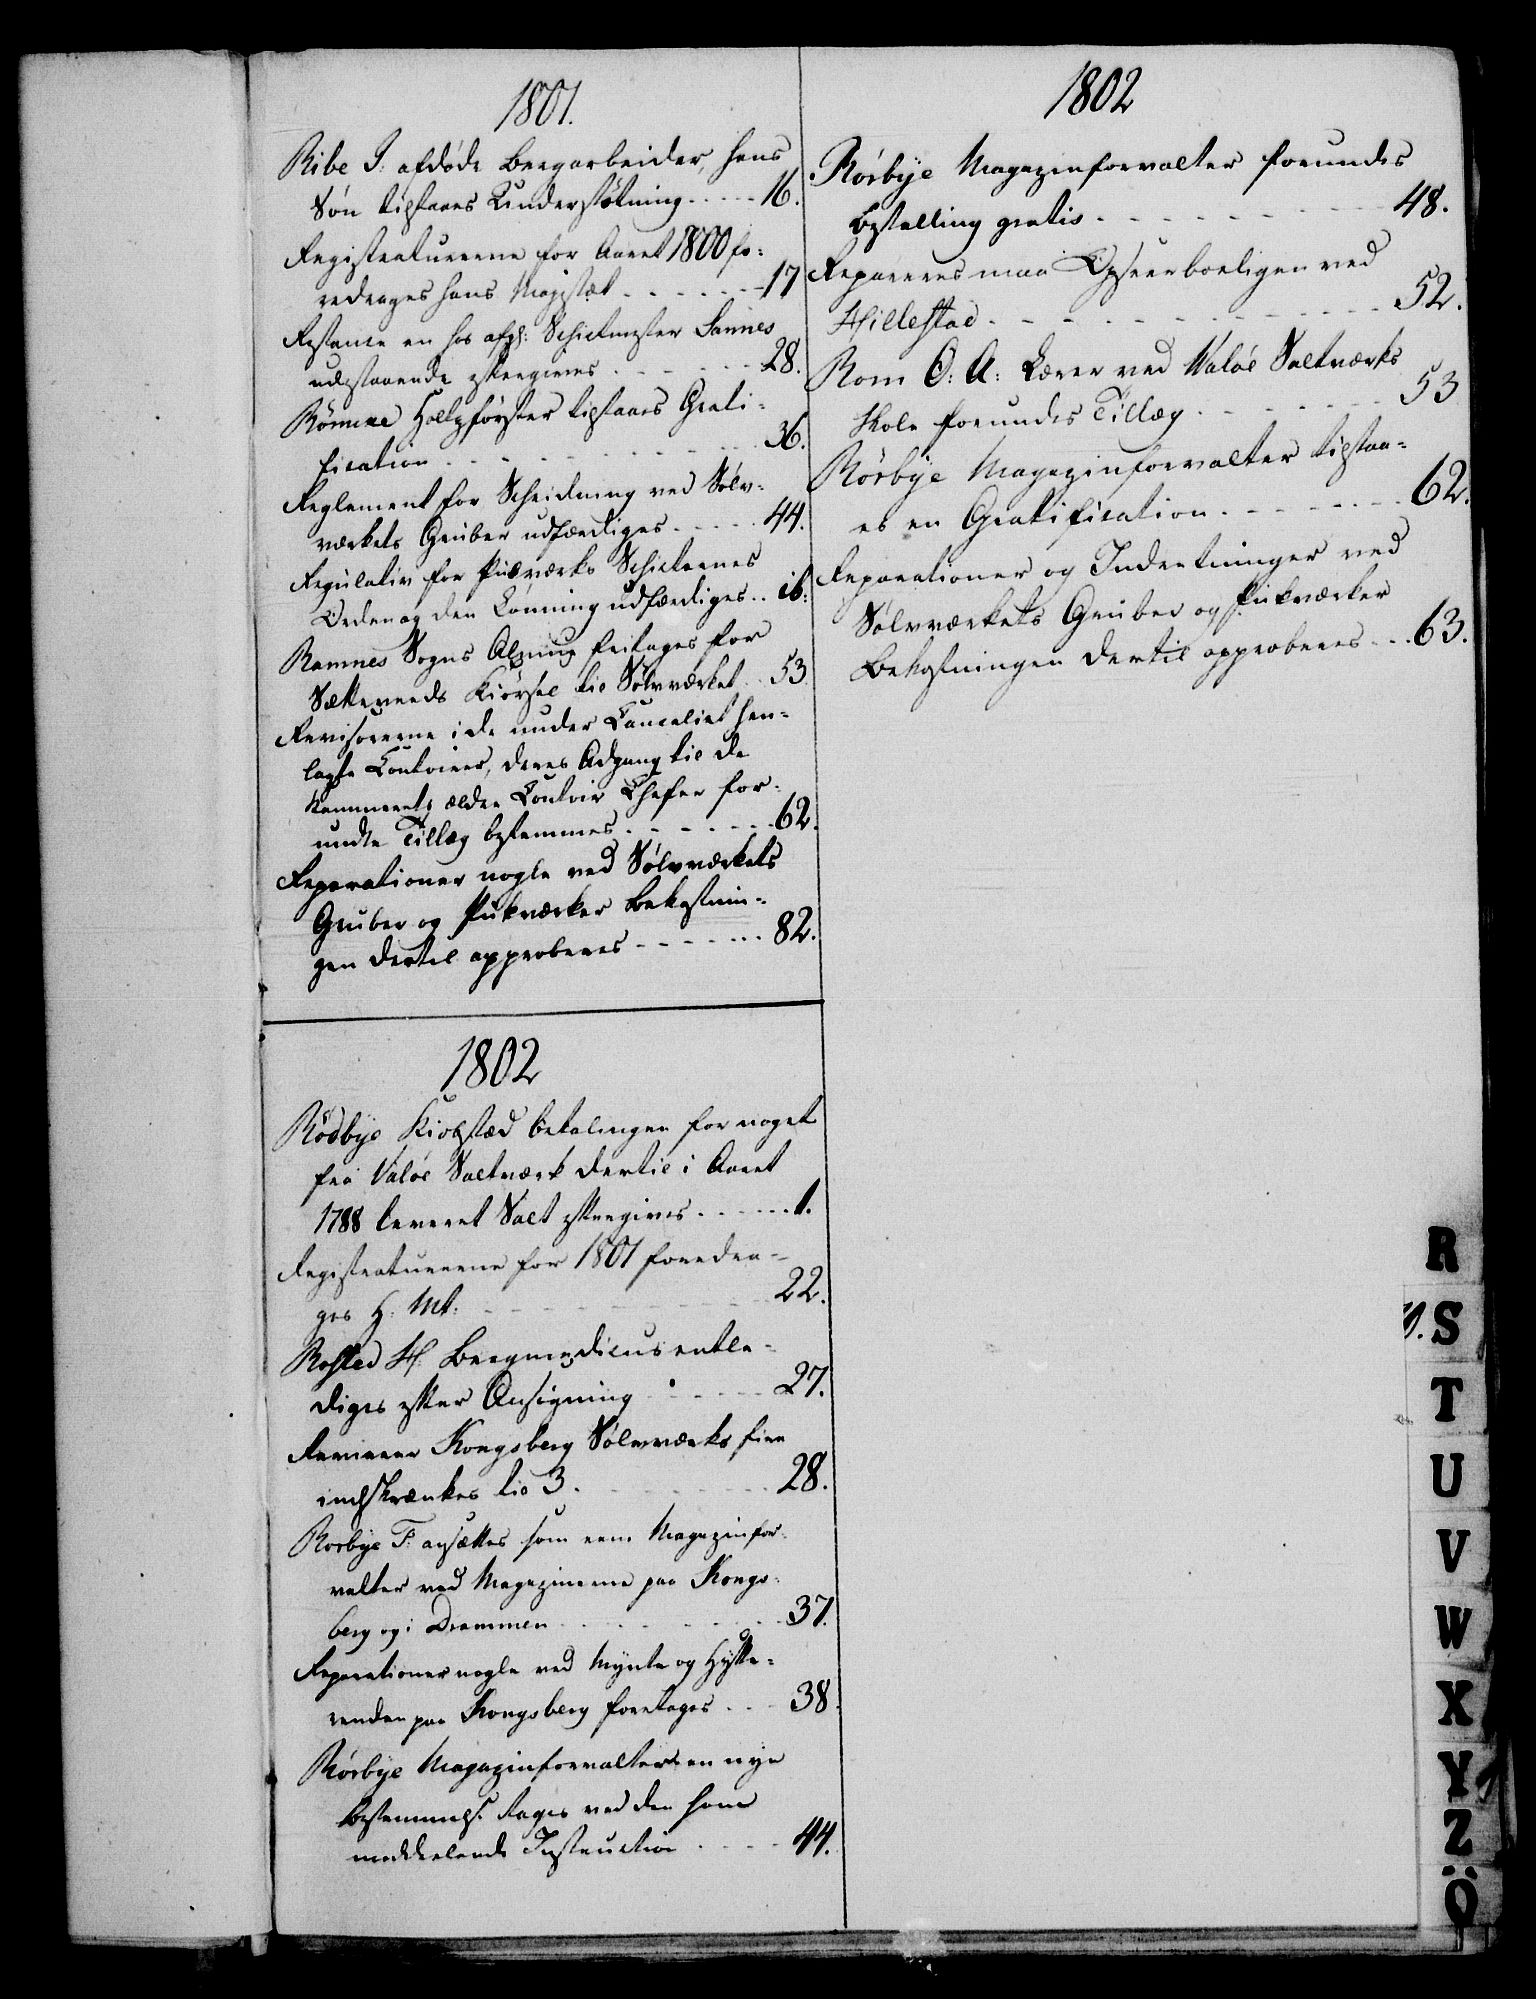 1801.
Ribe J. afdøde Bergarbeider, hans
Søn tilstaaes Understøtning - - - - 16.
Registraturerne for Aaret 1800 fo=
redrages hans Majestæt - - - - - 17
Restance en hos afg: Schictmester Sannes
udestaaende eftergives - - - - - 28.
Rømcke Holtzførster tilstaaes Grati=
fication - - - - - - - - - 36.
Reglement for Scheidning ved Sølv=
værkets Gruber udfærdiges - - - - 44.
Regulativ for Pukværks Schicternes
Orden og den Lønning udfærdiges - - ib:
Ramnes Sogns Almue fritages for
Sætteveeds Kiørsel til Sølvværket - - 53
Revisorerne i de under Cancelliet hen=
lagte Contoirer, deres Adgang til de
Kammerets ældre Contoir Chefer for=
undte Tillæg bestemmes - - - - - - 62.
Reparationer nogle ved Sølvværkets
Gruber og Pukværker Bekostnin=
gen dertil approberes - - - - - - 82.
1802
Rødbye Kiøbstæd betalingen for noget
fra Valøe Saltværk dertil i Aaret
1788 leveret Salt eftergives - - - - - 1.
Registraturerne for 1801 foredra=
ges H: Mt: - - - - - - - - 22.
Rosted H. Bergmedicus entle=
diges efter Ansøgning - - - - - 27.
Revierer Kongsberg Sølvværks fire
indskrænkes til 3. - - - - - - 28.
Rorbye F. ansættes som eene Magazinfor=
valter ved Magazinerne paa Kongs=
berg og i Drammen - - - - - - - 37.
Reparationer nogle ved Mynte og Hytte=
renden paa Kongsberg foretages - - - 38.
Rörbye Magazinforvalter en nye
Bestemmelse tages ved den ham
meddeelende Instruction - - - - 44.
1802
Rörbye Magazinforvalter forundes
Bestalling gratis - - - - - - - - - 48.
Repareres maa Opseerboeligen ved
Hillestad - - - - - - - - - - - 52.
Rom O: A: Lærer ved Valøe Saltværks
Skole forundes Tillæg - - - - - - - 53
Rörbye Magazinforvalter tilstaa=
es en Gratification - - - - - - - 62.
Reparationer og Indretninger ved
Sølvværkets Gruber og Pukværker
Bekostningen dertil approberes - - - 63.
R
S
T
U
V
W
X
Y
Z
Ö